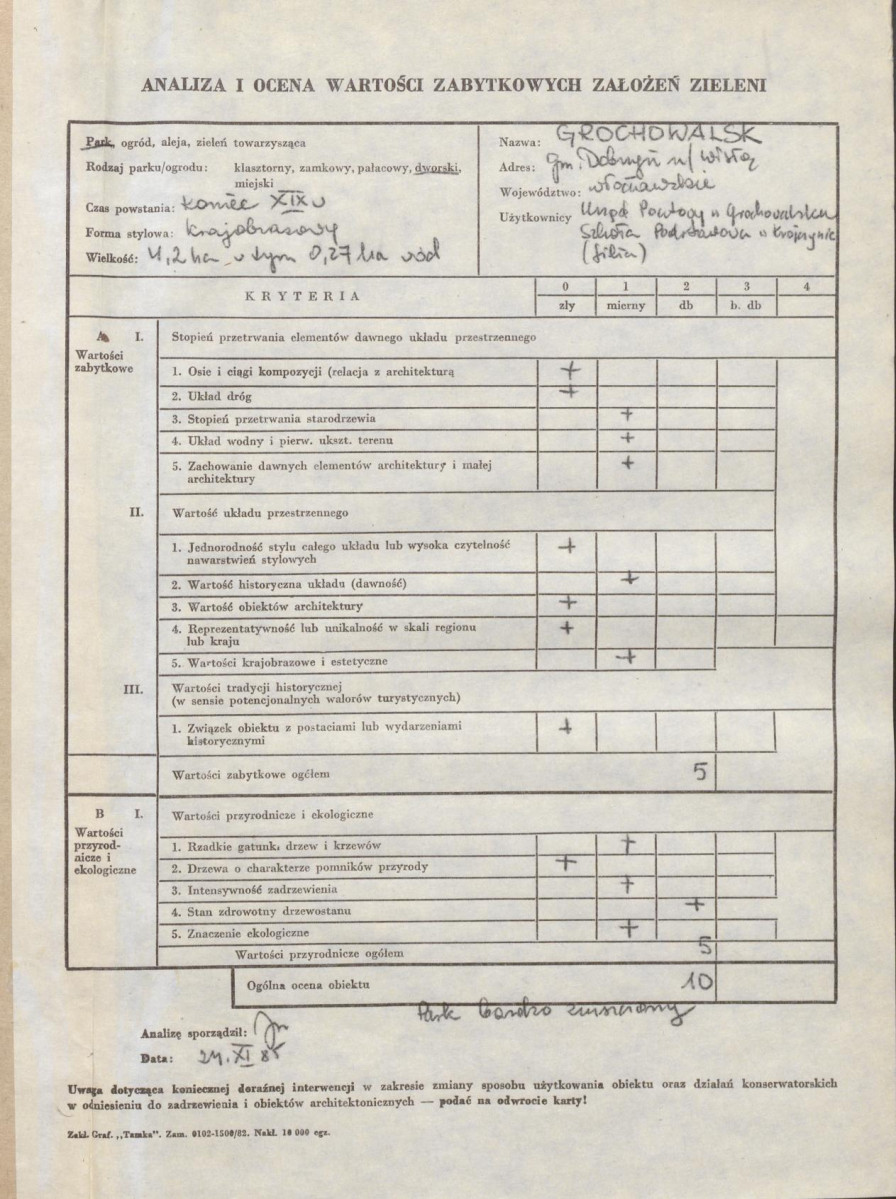 ANALIZA I OCENA WARTOŚCI ZABYTKOWYCH ZAŁOŻEŃ ZIELENI
Park, ogród, aleja, zieleń towarzysząca
Rodzaj parku/ogrodu: klasztorny, zamkowy, pałacowy, dworski,
miejski
Czas powstania: koniec XIX w
Forma stylowa: krajobrazowy
Wielkość: 4,2 ha w tym 0,27 ha wód
Nazwa: GROCHOWALSK
Adres: gm. Dobrzyń n/Wisłą
Województwo: włocławskie
Użytkownicy Urząd Pocztowy w Grochowalsku
Szkoła Podstawowa w
(filia)
KRYTERIA
0 1 2 3 4
zły mierny db b. db
A I. Stopień przetrwania elementów dawnego układu przestrzennego
Wartości
zabytkowe
1. Osie i ciągi kompozycji (relacja z architekturą +
2. Układ dróg +
3. Stopień przetrwania starodrzewia +
4. Układ wodny i pierw. ukszt. terenu +
5. Zachowanie dawnych elementów architektury i małej +
architektury
II. Wartość układu przestrzennego
1. Jednorodność stylu całego układu lub wysoka czytelność +
nawarstwień stylowych
2. Wartość historyczna układu (dawność) +
3. Wartość obiektów architektury +
4. Reprezentatywność lub unikalność w skali regionu +
lub kraju
5. Wartości krajobrazowe i estetyczne +
III. Wartości tradycji historycznej
(w sensie potencjonalnych walorów turystycznych)
1. Związek obiektu z postaciami lub wydarzeniami +
historycznymi
Wartości zabytkowe ogółem 5
B I. Wartości przyrodnicze i ekologiczne
Wartości
przyrod-
nicze i
ekologiczne
1. Rzadkie gatunki drzew i krzewów +
2. Drzewa o charakterze pomników przyrody +
3. Intensywność zadrzewienia +
4. Stan zdrowotny drzewostanu +
5. Znaczenie ekologiczne +
Wartości przyrodnicze ogółem 5
Ogólna ocena obiektu 10
Park bardzo zniszczony
Analizę sporządził:
Data: 24.XI 85
Uwaga dotycząca koniecznej doraźnej interwencji w zakresie zmiany sposobu użytkowania obiektu oraz działań konserwatorskich
w odniesieniu do zadrzewienia i obiektów architektonicznych — podać na odwrocie karty!
Zakł. Graf. „Tamka". Zam. 0102-1500/82. Nakł. 10 000 egz.